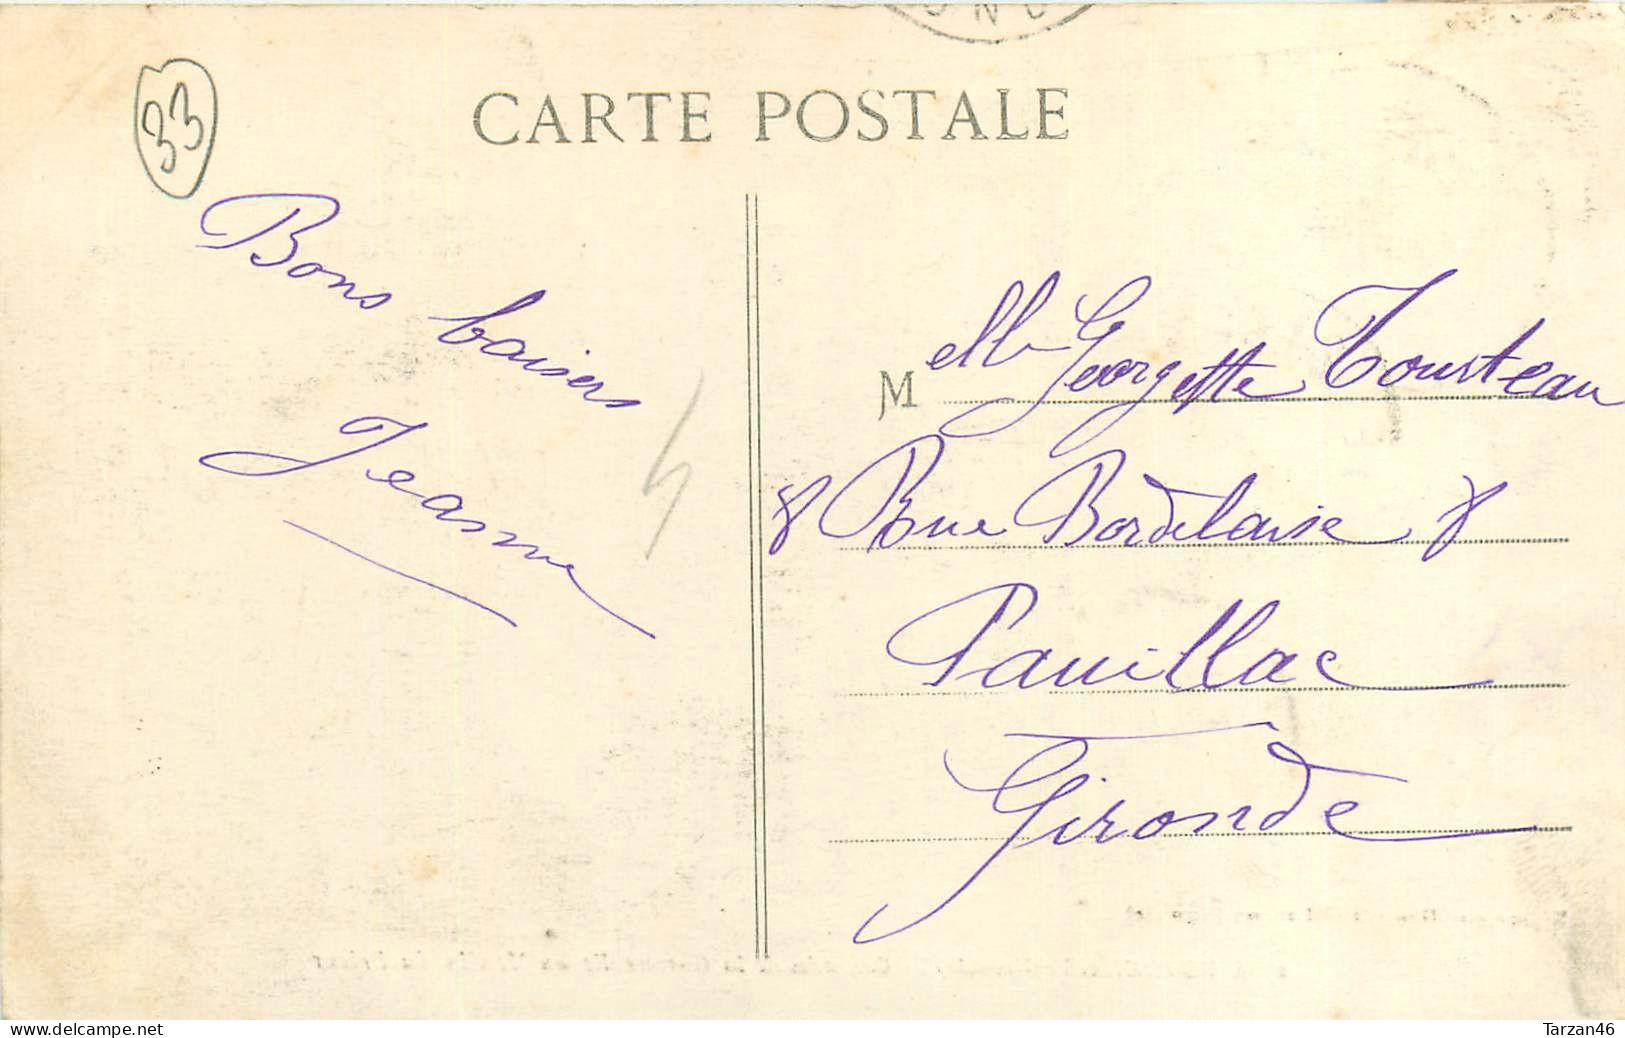 33
CARTE POSTALE
Bons baisers
Jeanne
Melle Georgette Tourteau
8 Rue Bordelaise 8
Pauillac
Gironde
delcampe.net
Tarzan46